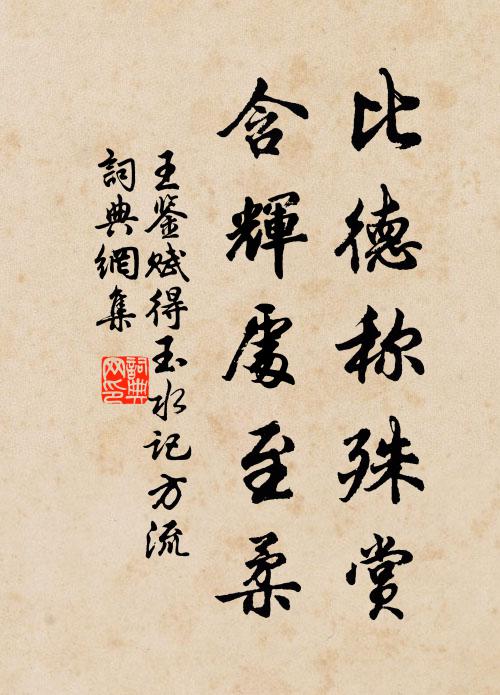 比德称殊赏
含輝處至柔
王鉴赋得玉水记方流
詞典網集
詞典網印